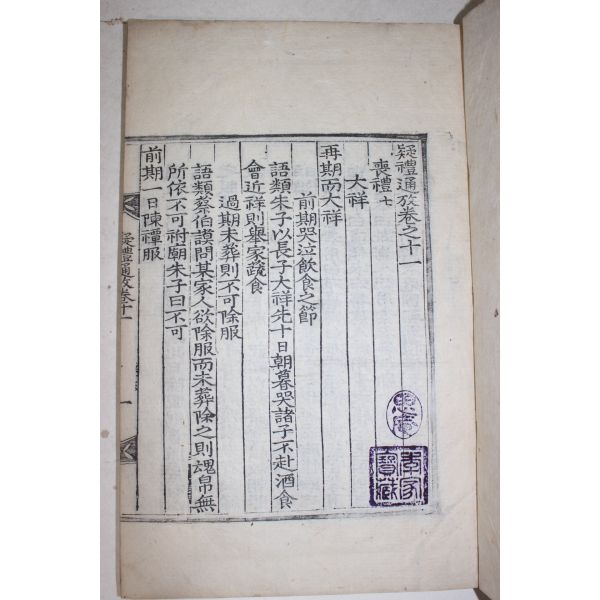 疑禮通攷卷之十一
喪禮七
大祥
再期而大祥
前期哭泣飮食之節
語類朱子以長子大祥先十日朝暮哭諸子不赴酒食
會近祥則舉家蔬食
過期未葬則不可除服
語類蔡伯謨問某家人欲除服而未葬除之則魂帛無
所依不可祔廟朱子曰不可
前期一日陳禫服
疑禮通攷卷十一
一
李家
寶藏